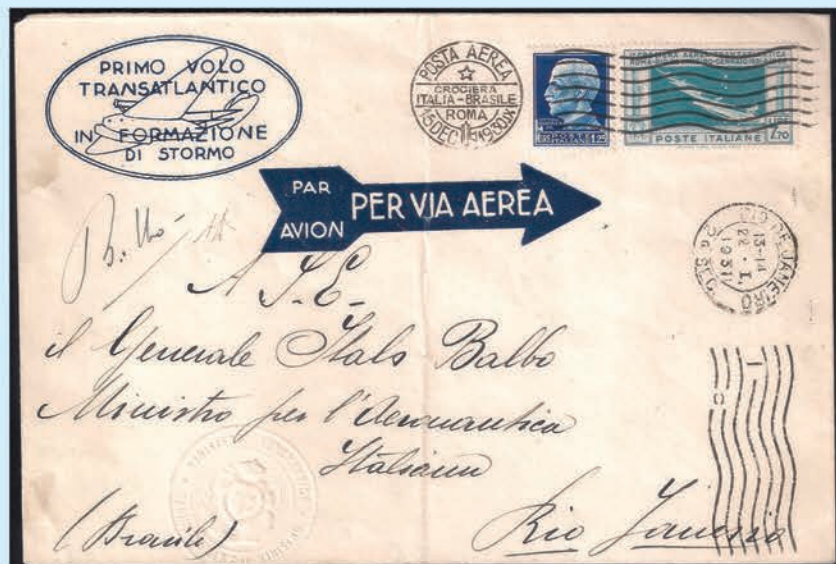 PRIMO VOLO
TRANSATLANTICO
IN FORMAZIONE
DI STORMO
POSTA AEREA
CROCIERA
ITALIA-BRASILE
ROMA
15 DEC 1930 IX
POSTE ITALIANE
7,70
PAR
AVION
PER VIA AEREA
RIO DE JANEIRO
13-14
22. I.
1931
A S. E.
il Generale Italo Balbo
Ministro per l'Aeronautica
Italiana
(Brasile)
Rio Janeiro